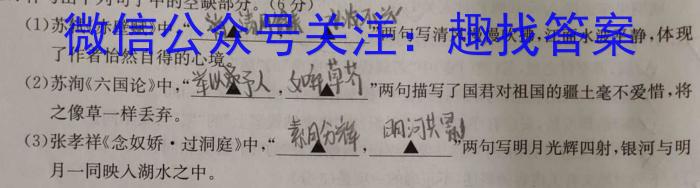 中的空缺部分。(6分)
(1)苏
微信公众号关注：趣找答案
”两句写清
静，体现
了作者怡然自得的心境。
(2)苏洵《六国论》中，“举以予人，如弃草芥”两句描写了国君对祖国的疆土毫不爱惜，将
之像草一样丢弃。
(3)张孝祥《念奴娇·过洞庭》中，“素月分辉，明河共影”两句写明月光辉四射，银河与明
月一同映入湖水之中。